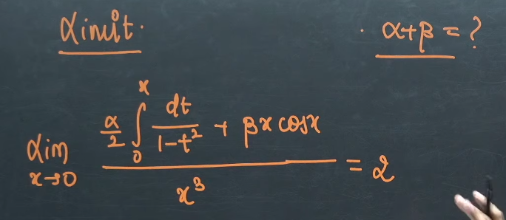 Limit.
α+β = ?
Lim x→0 (α/2 ∫₀ˣ dt/(1-t²) + βx cosx) / x³ = 2